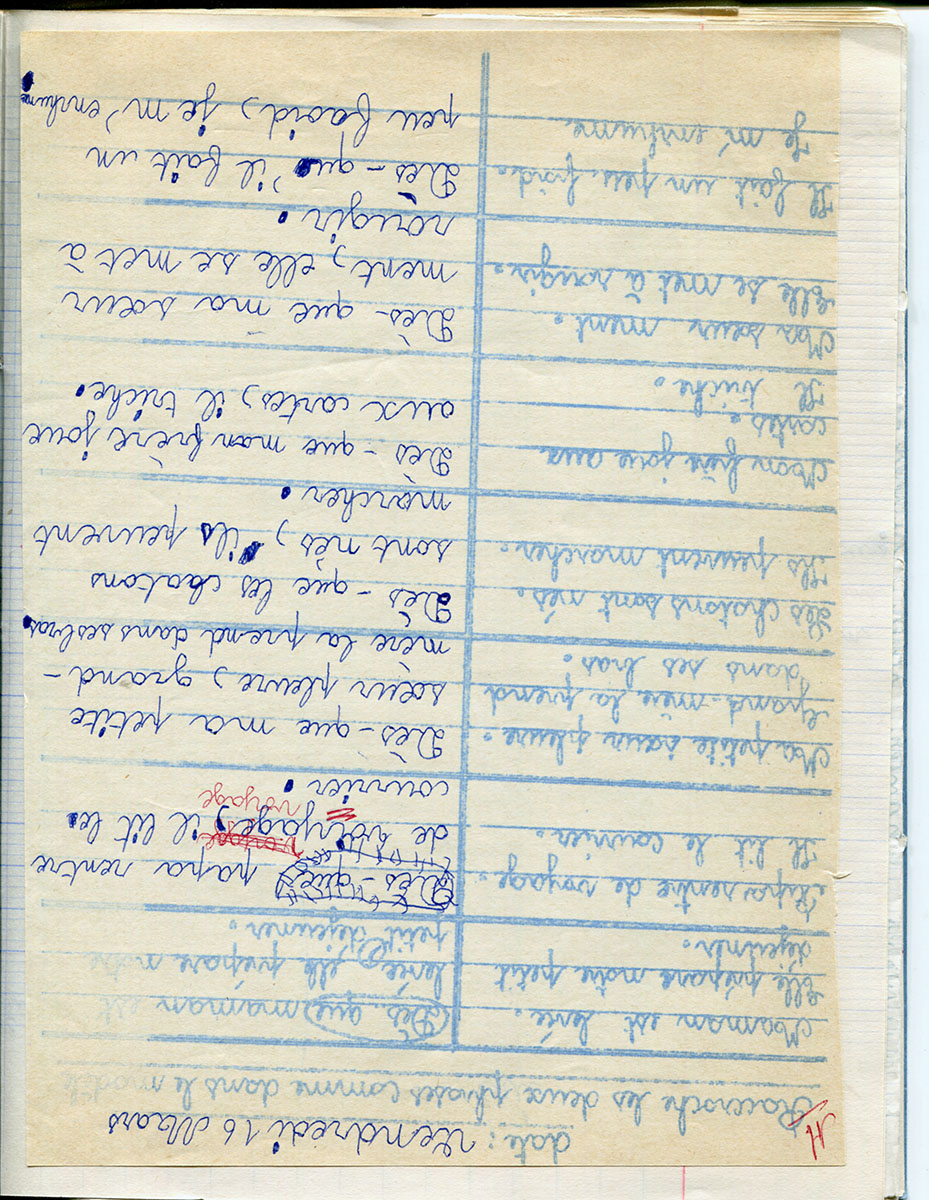 date: Vendredi 16 Mars
Raccroche les deux phrases comme dans le modèle
Maman est levée.
Elle prépare notre petit
déjeuner.
Dès que maman est
levée, elle prépare notre
petit déjeuner.
Papa rentre de voyage.
Il lit le courrier.
Dès-que papa rentre
de voyage, il lit le
voyage
courrier.
Ma petite sœur pleure.
Grand-mère la prend
dans ses bras.
Dès-que ma petite
sœur pleure, grand-
mère la prend dans ses bras.
Les chatons sont nés.
Ils peuvent marcher.
Dès-que les chatons
sont nés, ils peuvent
marcher.
Mon frère joue aux
cartes.
Il triche.
Dès-que mon frère joue
aux cartes, il triche.
Ma sœur ment.
Elle se met à rougir.
Dès-que ma sœur
ment, elle se met à
rougir.
Il fait un peu froid.
Je m'enrhume
Dès-qu'il fait un
peu froid, je m'enrhume